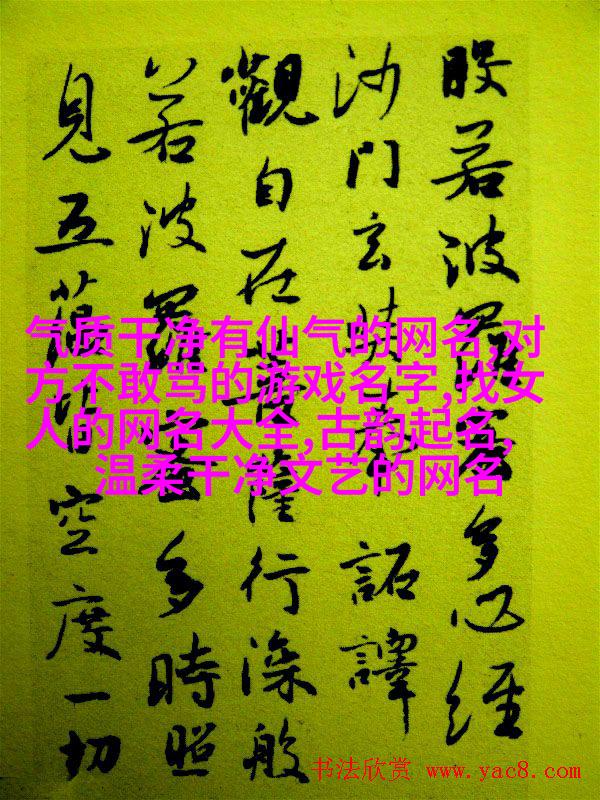 般若波羅蜜多心經
沙門玄奘奉 詔譯
觀自在菩薩行深般
若波羅蜜多時照
見五蘊皆空度一切
气质干净有仙气的网名,对
方不敢骂的游戏名字,找女
人的网名大全,古韵起名,
温柔干净文艺的网名
书法欣赏 www.yac8.com